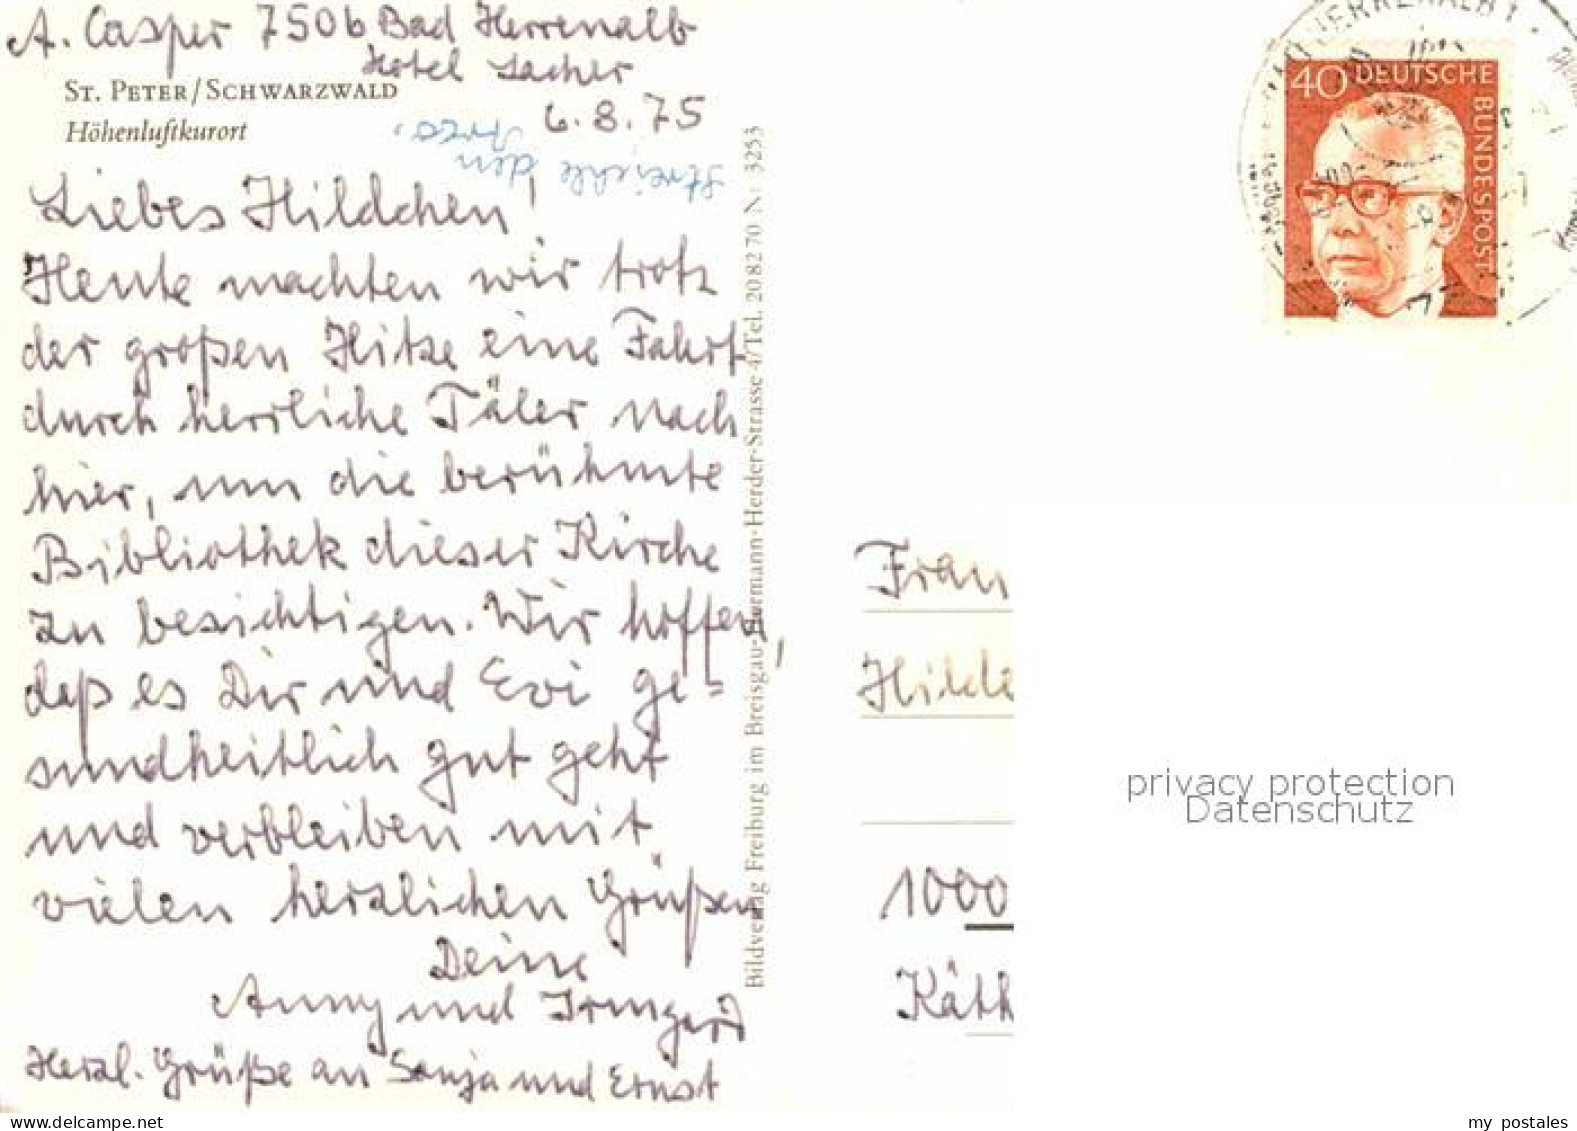 A. Casper 7506 Bad Herrenalb
Hotel Lacher
St. Peter/Schwarzwald
6.8.75
Höhenluftkurort
Streichle den
Arco.
Liebes Hildchen!
Heute machten wir trotz
der großen Hitze eine Fahrt
durch herrliche Täler nach
hier, um die berühmte
Bibliothek dieser Kirche
zu besichtigen. Wir hoffen,
daß es Dir und Evi ge=
sundheitlich gut geht
und verbleiben mit
vielen herzlichen Grüßen
Deine
Anny und Irmgard
Herzl. Grüße an Sonja und Ernst
Bildverlag Freiburg im Breisgau·Hermann-Herder-Strasse 4/Tel. 2082 70 N 3253
40 DEUTSCHE
BUNDESPOST
Frau
Hilde
1000
Käth
privacy protection
Datenschutz
my postales